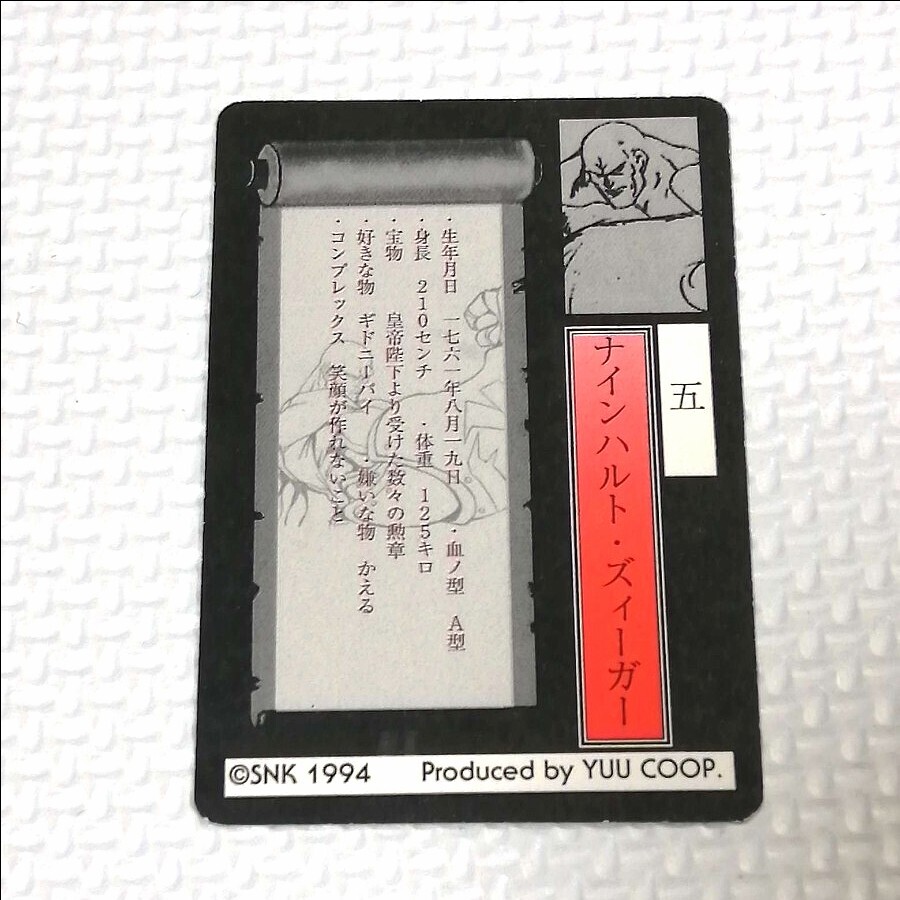 五
ナインハルト・ズィーガー
・生年月日　一七六一年八月一九日　・血ノ型　A型
・身長　210センチ　・体重　125キロ
・宝物　皇帝陛下より受けた数々の勲章
・好きな物　ギドニーパイ　・嫌いな物　かえる
・コンプレックス　笑顔が作れないこと
©SNK 1994　Produced by YUU COOP.